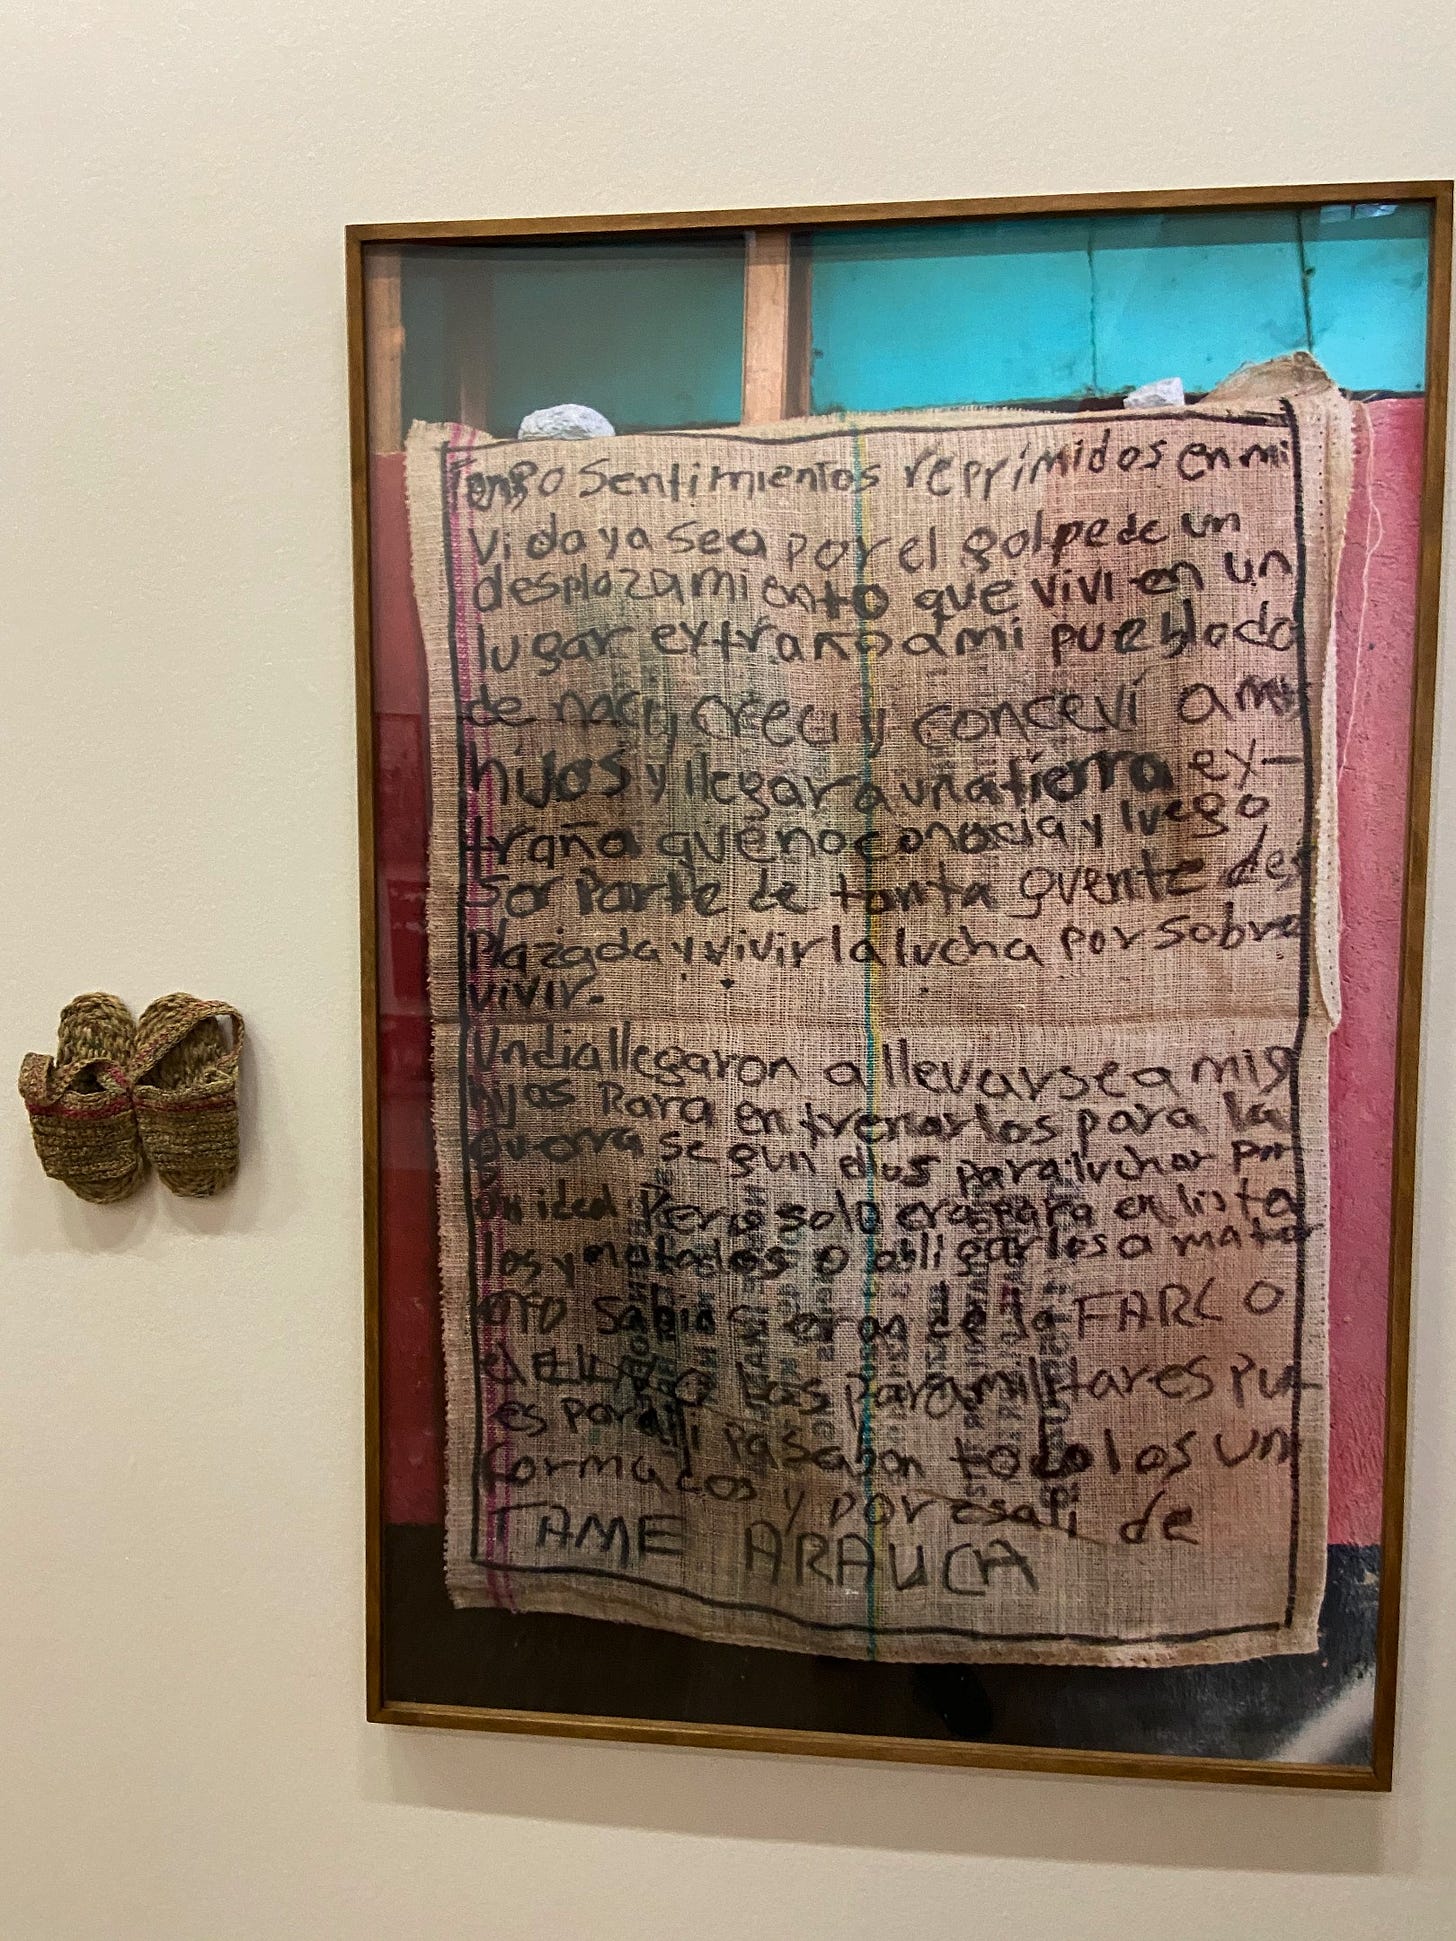 Tengo Sentimientos reprímidos en mi
vida ya sea por el golpe de un
desplazamiento que viví en un
lugar extraño a mi pueblo do
de naci, creci y conceví a mis
hijos y llegar a una tierra ex-
traña que no conocia y luego
Ser parte de tanta guente des
plazada y vivir la lucha por sobre
vivir.
Un dia llegaron a llevarse a mis
hijos para entrenarlos para la
Guerra segun ellos para luchar por
un ideal. Pero solo era para enlista
los y matarlos o obligarlos a matar
no sabia si eran de la FARC O
el ELN o los paramilitares pu-
es por alli pasaban todo los uni
formados y por esa fi de
TAME ARAUCA